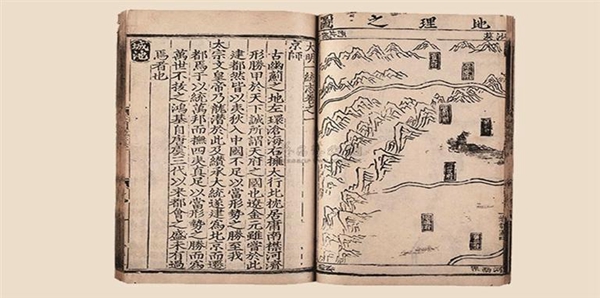 地理之圖
大明一統志卷之一
京師
古幽薊之地左環滄海右擁太行北枕居庸南襟河濟
形勝甲於天下誠所謂天府之國也遼金元雖嘗於此
建都然皆以夷狄入中國不足以當形勢之勝至我
太宗文皇帝乃龍潛於此及纘承大統遂建為北京而遷
都焉于以統萬邦而撫四夷真足以當形勢之勝而為
萬世不拔之鴻基自唐虞三代以來都會之盛未有過
焉者也
城池